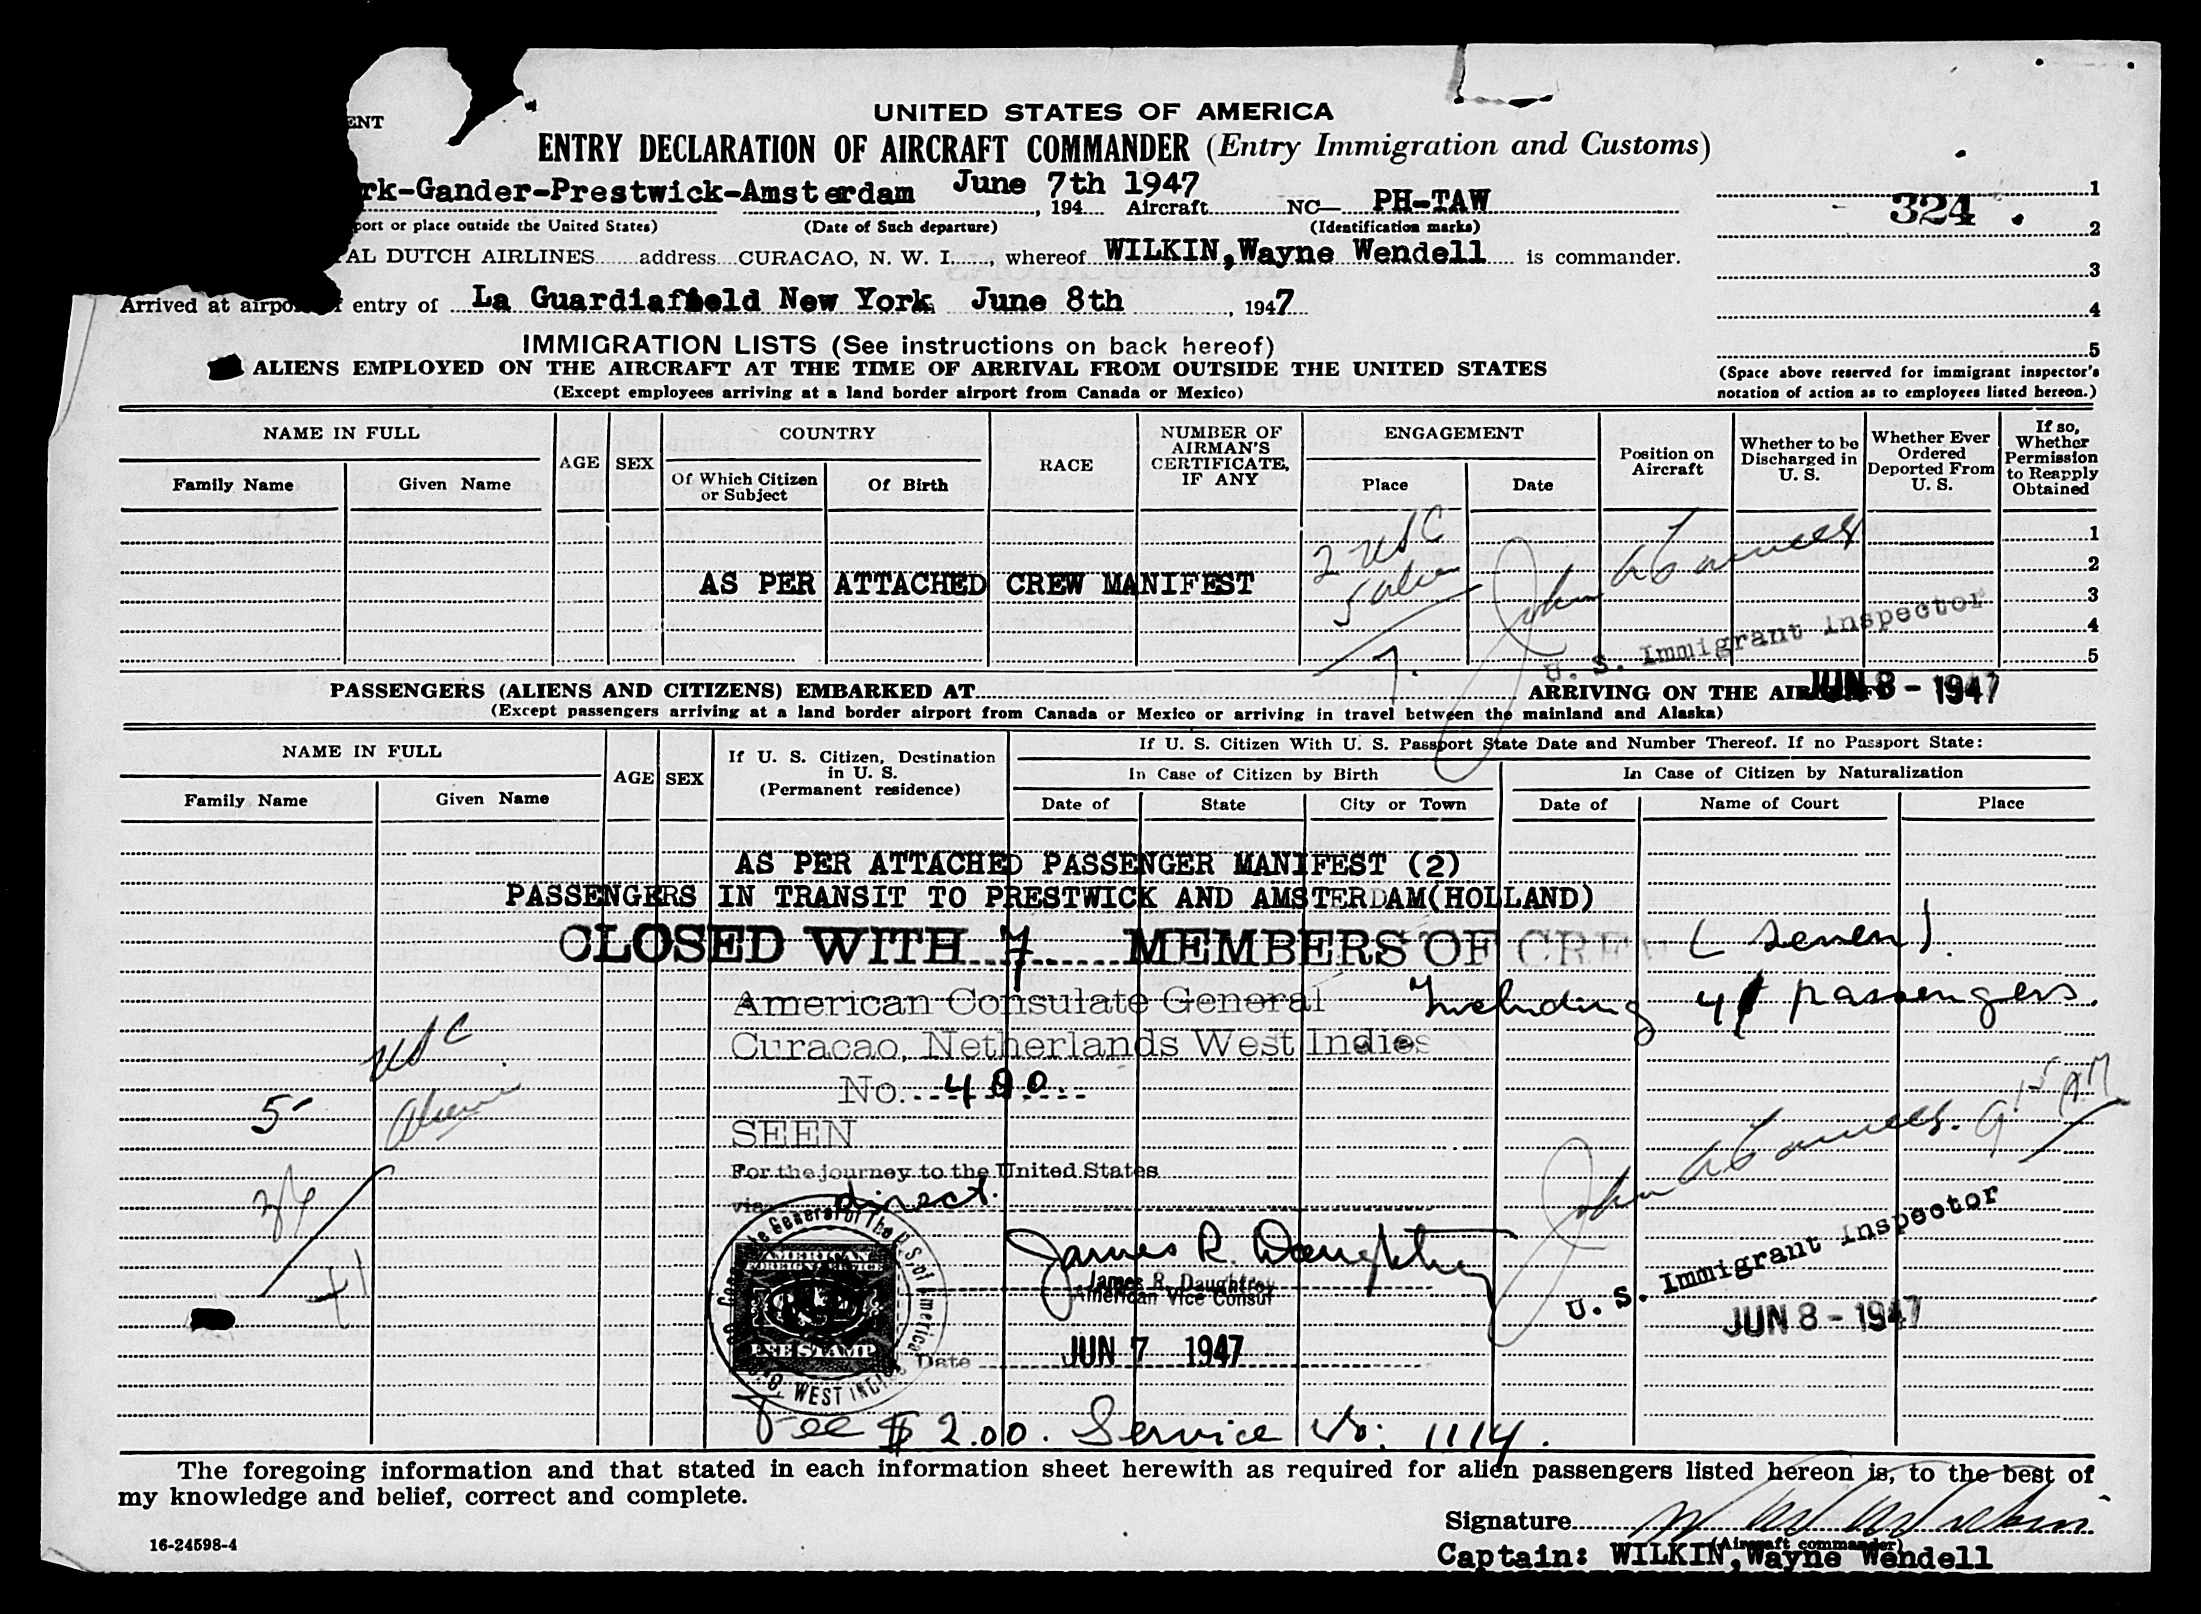 ENT
UNITED STATES OF AMERICA
ENTRY DECLARATION OF AIRCRAFT COMMANDER (Entry Immigration and Customs)
rk-Gander-Prestwick-Amsterdam June 7th 1947, 194 Aircraft NC— PH-TAW
port or place outside the United States) (Date of Such departure) (Identification marks)
AL DUTCH AIRLINES address CURACAO, N. W. I., whereof WILKIN, Wayne Wendell is commander.
Arrived at airpo entry of La Guardiafield New York June 8th, 1947
1
324
2
3
4
5
(Space above reserved for immigrant inspector's
notation of action as to employees listed hereon.)
IMMIGRATION LISTS (See instructions on back hereof)
ALIENS EMPLOYED ON THE AIRCRAFT AT THE TIME OF ARRIVAL FROM OUTSIDE THE UNITED STATES
(Except employees arriving at a land border airport from Canada or Mexico)
NAME IN FULL
Family Name Given Name
AGE SEX
COUNTRY
Of Which Citizen or Subject Of Birth
RACE
NUMBER OF AIRMAN'S CERTIFICATE, IF ANY
ENGAGEMENT
Place Date
Position on Aircraft
Whether to be Discharged in U. S.
Whether Ever Ordered Deported From U. S.
If so, Whether Permission to Reapply Obtained
1
2 USC
2
5 alien
AS PER ATTACHED CREW MANIFEST
3
7.
4
U. S. Immigrant Inspector
5
PASSENGERS (ALIENS AND CITIZENS) EMBARKED AT ARRIVING ON THE AIR JUN 8 - 1947
(Except passengers arriving at a land border airport from Canada or Mexico or arriving in travel between the mainland and Alaska)
NAME IN FULL
Family Name Given Name
AGE SEX
If U. S. Citizen, Destination in U. S. (Permanent residence)
If U. S. Citizen With U. S. Passport State Date and Number Thereof. If no Passport State:
In Case of Citizen by Birth In Case of Citizen by Naturalization
Date of State City or Town Date of Name of Court Place
AS PER ATTACHED PASSENGER MANIFEST (2)
PASSENGERS IN TRANSIT TO PRESTWICK AND AMSTERDAM(HOLLAND)
CLOSED WITH 7 MEMBERS OF CREW (seven).
American Consulate General Including 41 passengers.
Curacao, Netherlands West Indies
No. 400.
SEEN
For the journey to the United States
via direct.
5 USC
36 aliens
41
James R. Daughtrey
James R. Daughtrey
American Vice Consul
AMERICAN
FOREIGN SERVICE
FEE STAMP
WEST INDIES
Date JUN 7 1947
U. S. Immigrant Inspector
JUN 8 - 1947
Fee $ 2.00. Service No: 1114.
The foregoing information and that stated in each information sheet herewith as required for alien passengers listed hereon is, to the best of
my knowledge and belief, correct and complete.
16-24598-4
Signature
(Aircraft commander)
Captain: WILKIN, Wayne Wendell